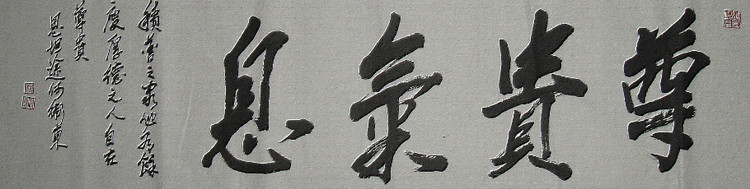 尊貴氣息
積善之家必有餘
慶厚德之人自在
尊貴
何衛東